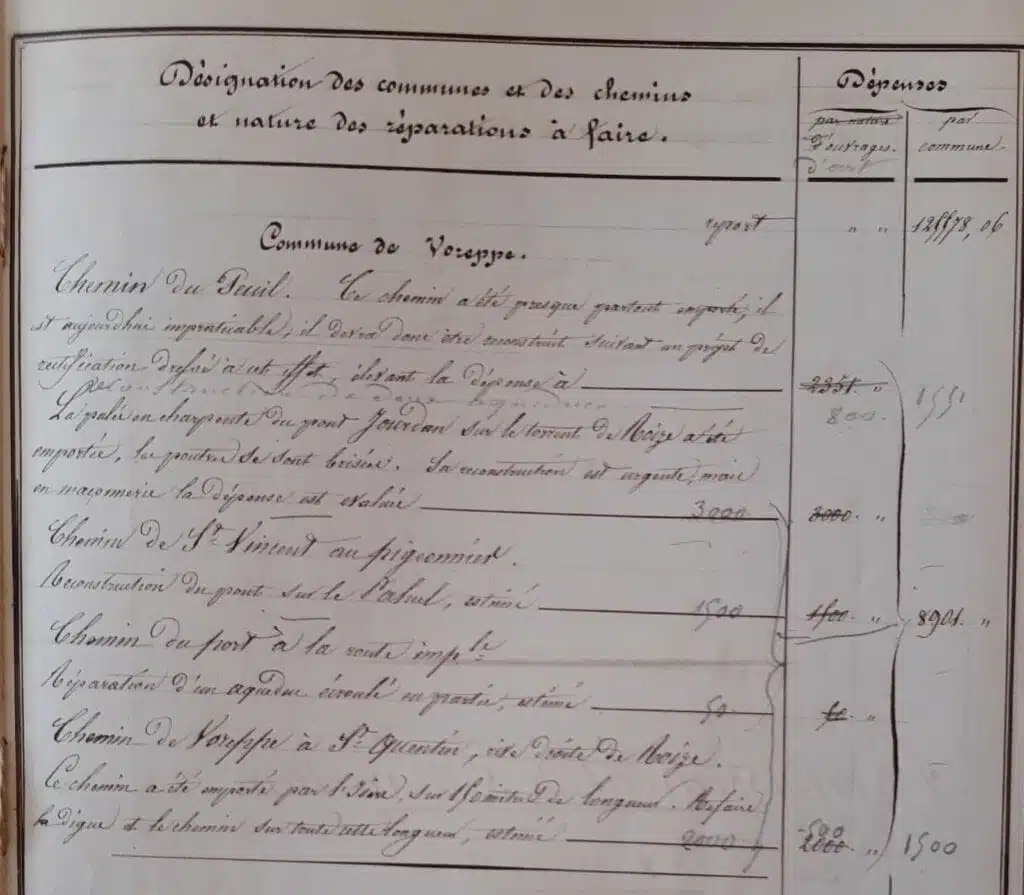 Désignation des communes et des chemins
et nature des réparations à faire.
Dépenses
par nature
d'ouvrages.
par
commune.
report " " 125578, 06
Commune de Voreppe.
Chemin du Peuil. Ce chemin a été presque partout emporté, il
est aujourd'hui impraticable, il devra donc être reconstruit suivant un projet de
rectification dressé à cet effet, élevant la dépense à 2351 "
800. 1551
Reconstruction de deux aqueducs
La palée en charpente du pont Jourdan sur le torrent de Roize a été
emportée, les poutres se sont brisées. Sa reconstruction est urgente, mais
en maçonnerie la dépense est evaluée 3000 3000 "
Chemin de St Vincent au pigeonnier.
Reconstruction du pont sur le , estimé 1500 1500 " 8901. "
Chemin du port à la route imple
Réparation d'un aqueduc écroulé en partie, estimé 50 50 "
Chemin de Voreppe à St Quentin, rive droite de Roize.
Ce chemin a été emporté par l'Isère, sur 150 mètres de longueur. Refaire
la digue et le chemin sur toute cette longueur, estimé 2000 2000 "
500 1500